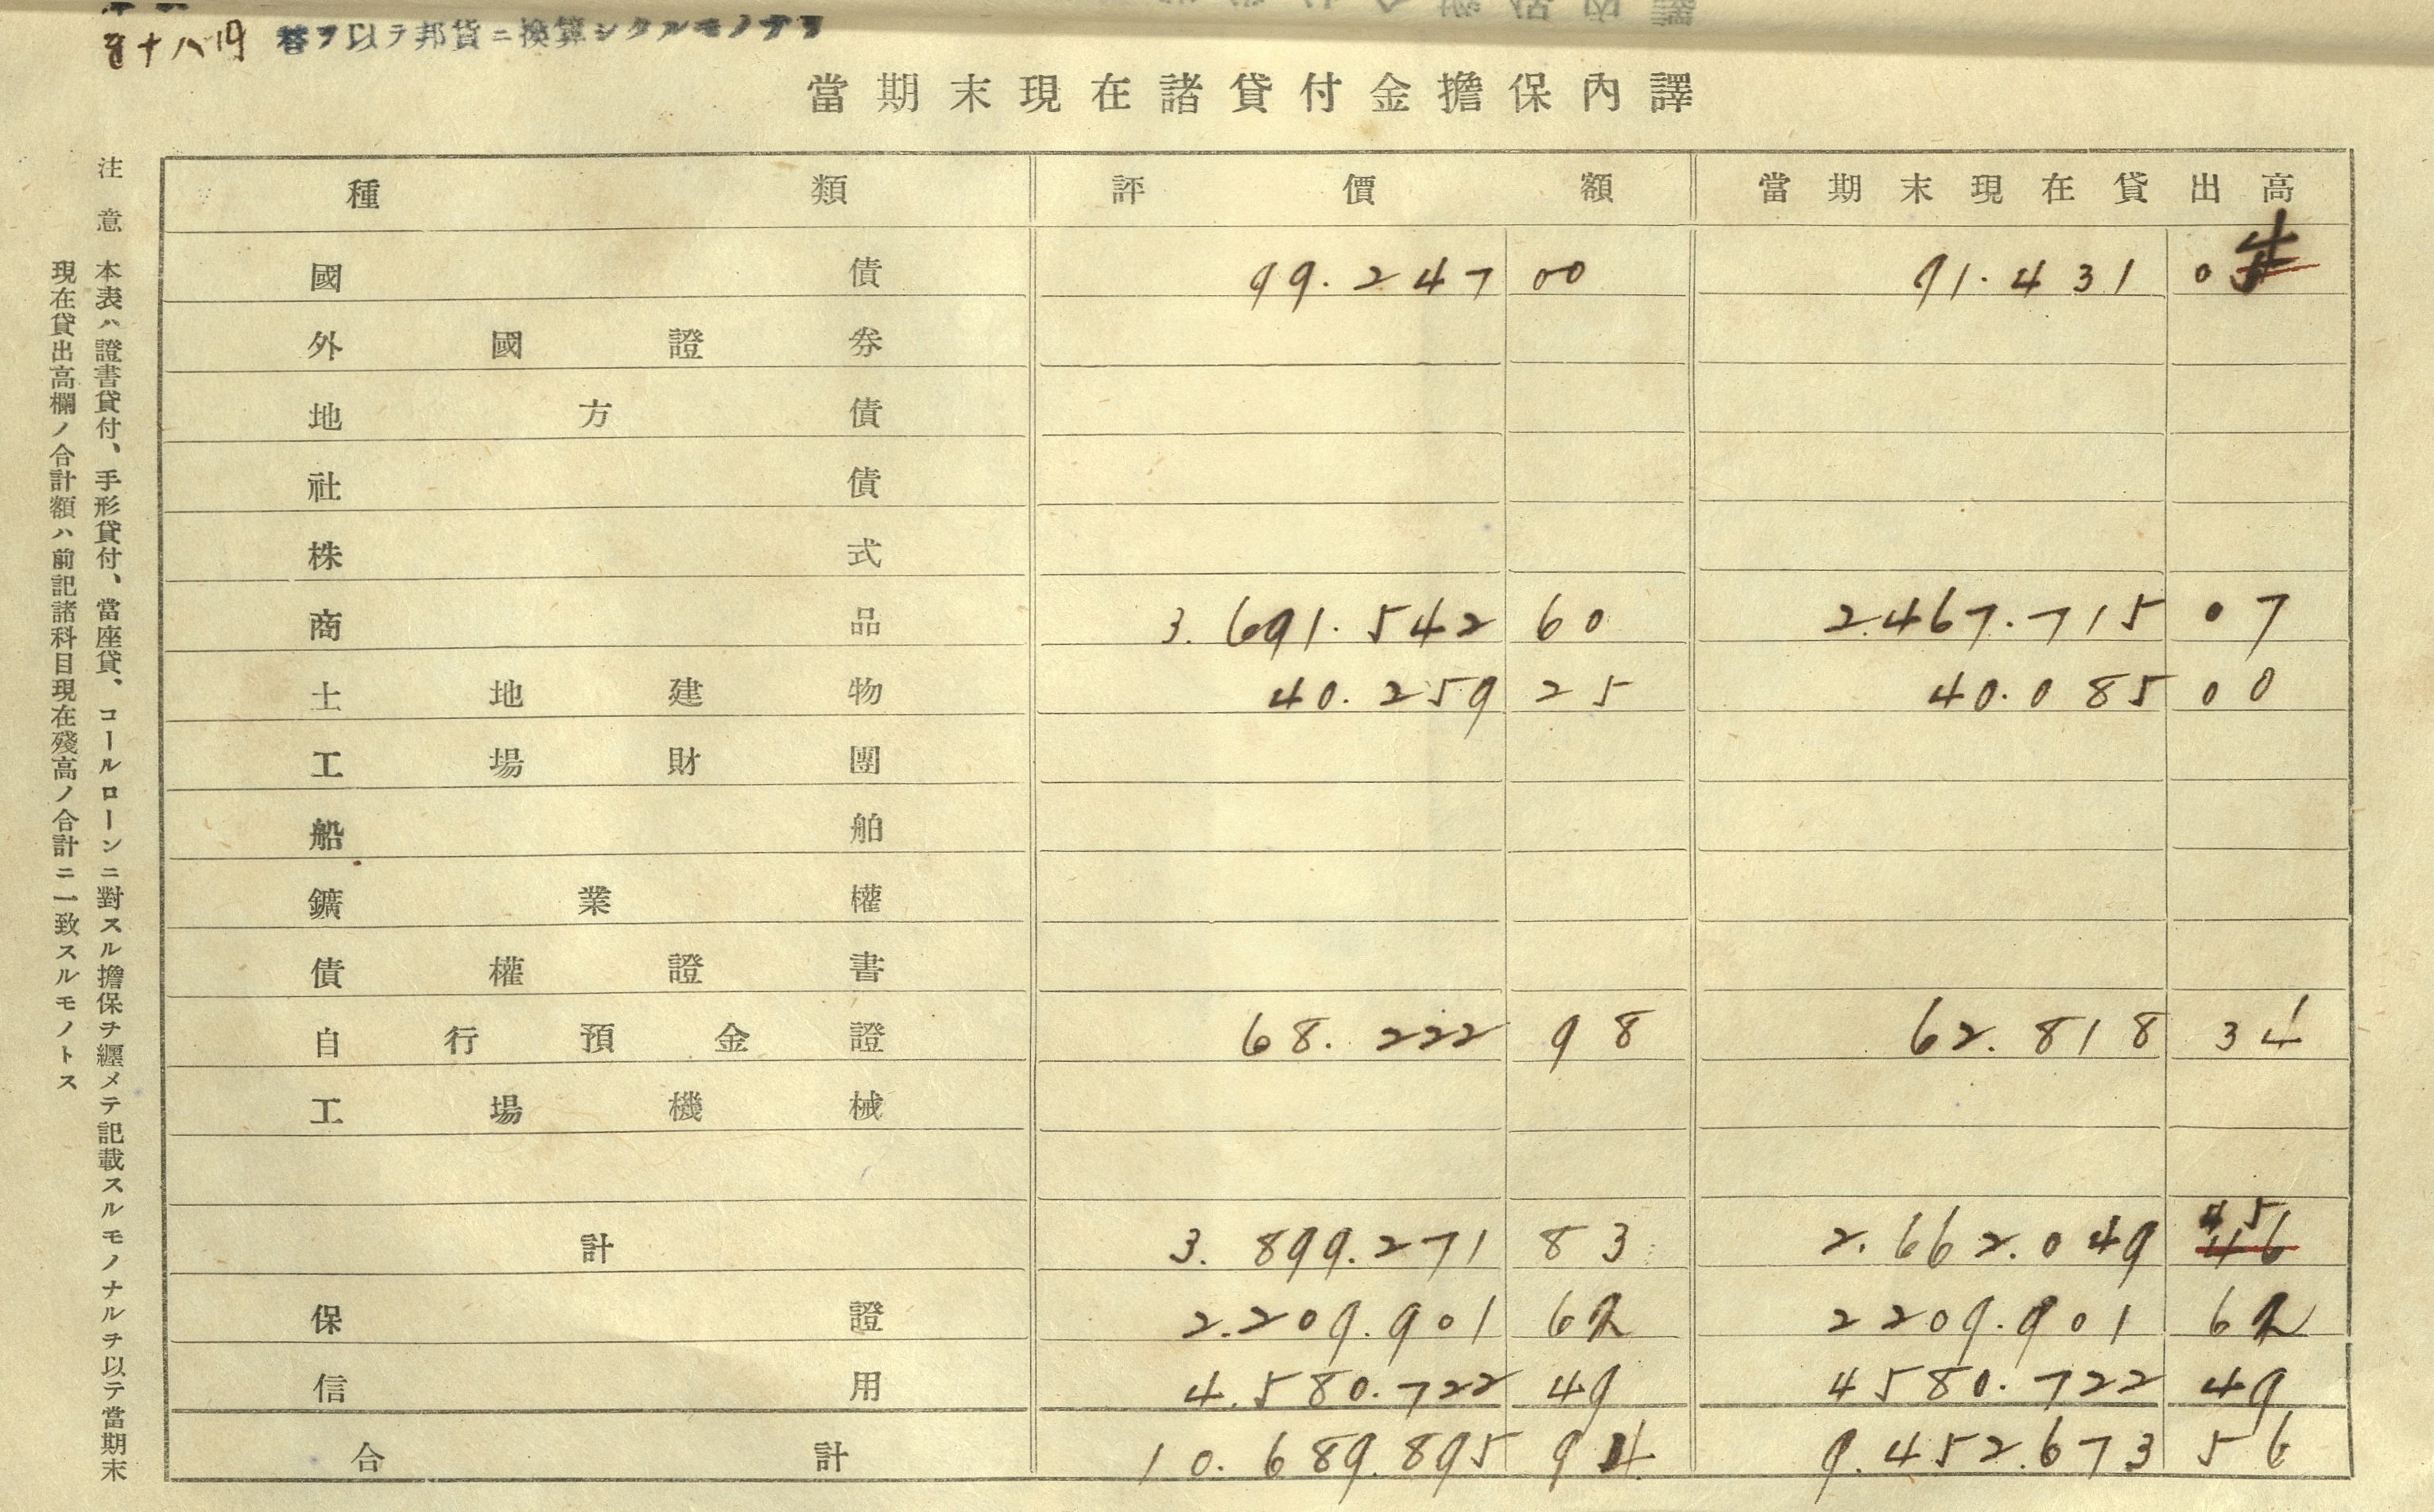 十八円 ヲ以テ邦貨ニ換算シタルモノナリ
當期末現在諸貸付金擔保內譯
種類 評價額 當期末現在貸出高
國債 99.247 00 91.431 04
外國證券
地方債
社債
株式
商品 3.691.542 60 2.467.715 07
土地建物 40.259 25 40.085 00
工場財團
船舶
鑛業權
債權證書
自行預金證 68.222 98 62.818 34
工場機械
計 3.899.271 83 2.662.049 45 46
保證 2.209.901 62 2209.901 62
信用 4.580.722 49 4580.722 49
合計 10.689.895 94 9.452.673 56
注意 本表ハ證書貸付、手形貸付、當座貸、コールローンニ對スル擔保ヲ纒メテ記載スルモノナルヲ以テ當期末
現在貸出高欄ノ合計額ハ前記諸科目現在殘高ノ合計ニ一致スルモノトス